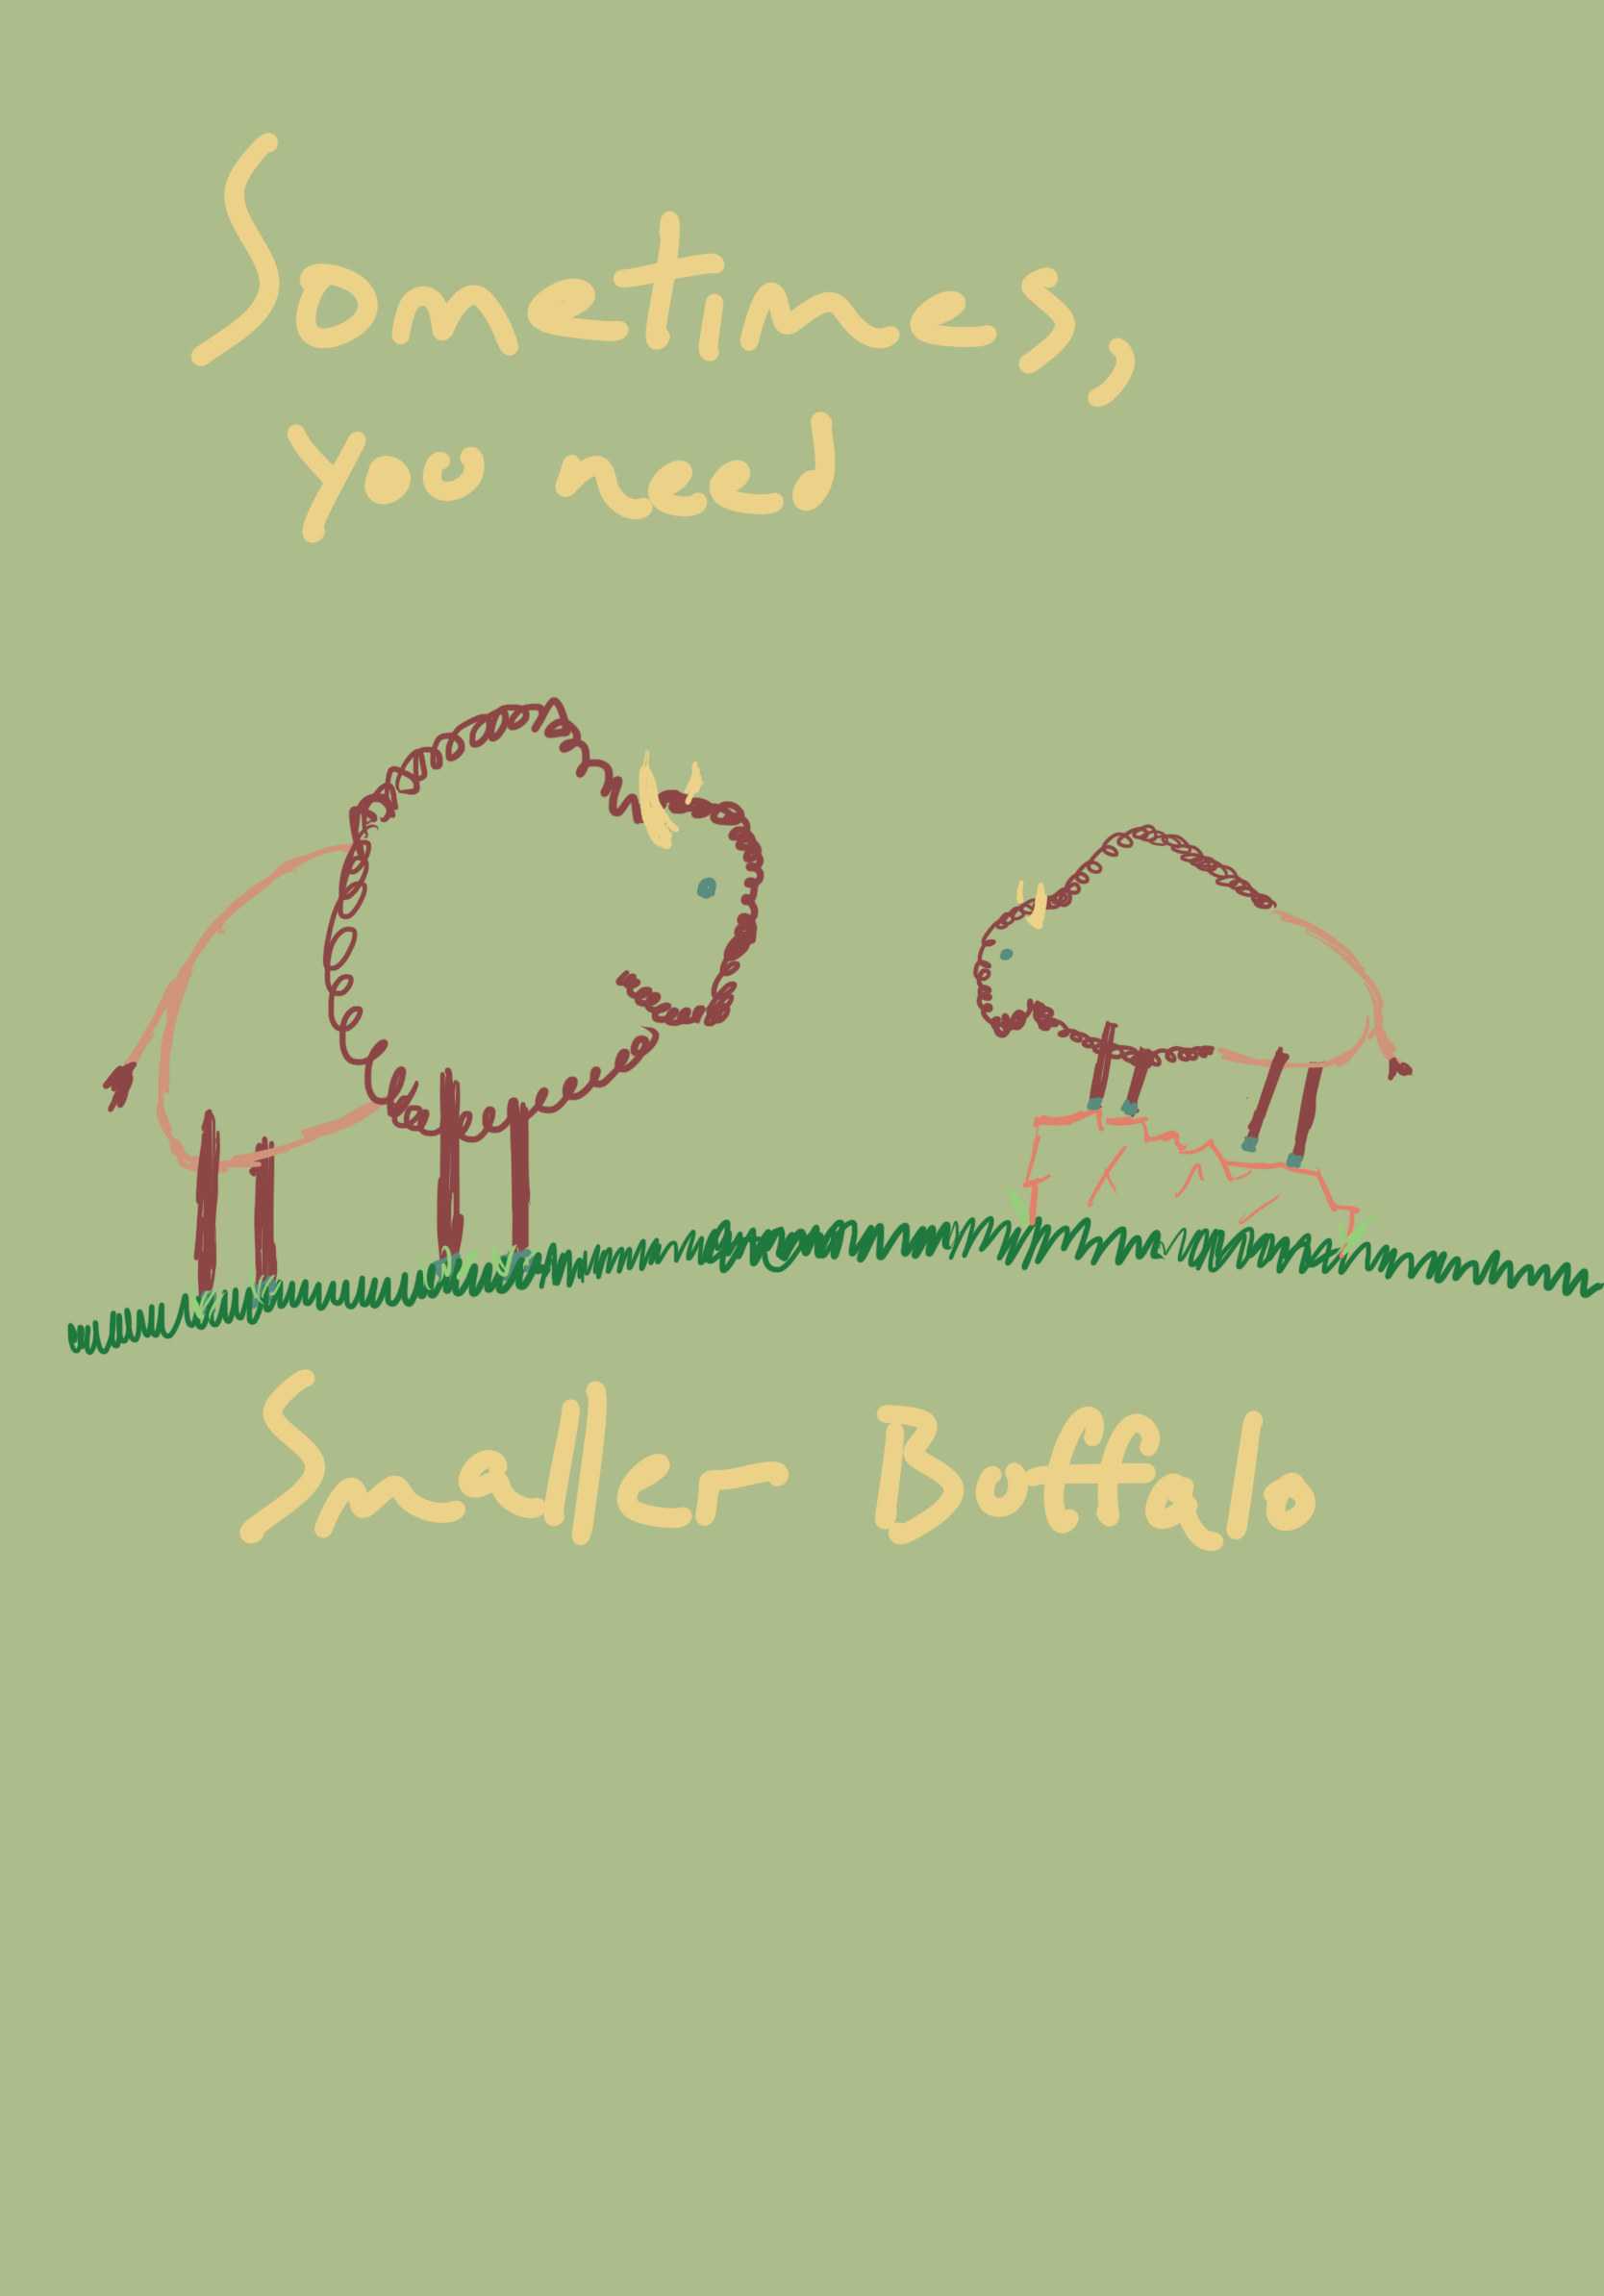 Sometimes,
you need
Smaller Buffalo